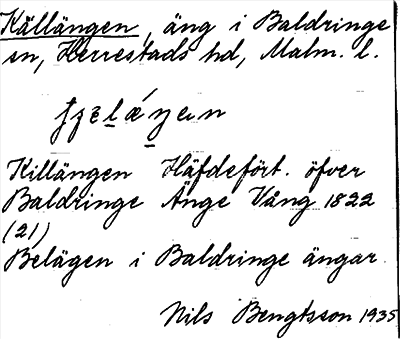 Källängen, äng i Baldringe
sn, Herrestads hd, Malm. l.
Killängen Häfdefört. öfver
Baldringe Änge Vång 1822
(21)
Belägen i Baldringe ängar.
Nils Bengtsson 1935